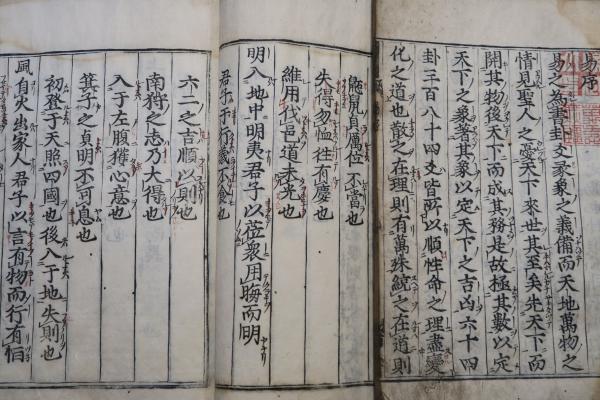 易序
易之爲書卦爻彖象之義備而天地萬物之
情見聖人之憂天下來世其至矣先天下而
開其物後天下而成其務是故極其數以定
天下之象著其象以定天下之吉凶六十四
卦三百八十四爻皆所以順性命之理盡變
化之道也散之在理則有萬殊統之在道則
鼫鼠貞厲位不當也
失得勿恤往有慶也
維用伐邑道未光也
明入地中明夷君子以莅衆用晦而明
君子于行義不食也
六二之吉順以則也
南狩之志乃大得也
入于左腹獲心意也
箕子之貞明不可息也
初登于天照四國也後入于地失則也
風自火出家人君子以言有物而行有恒